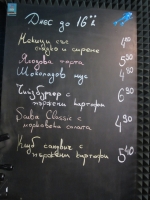 Днес до 16ч.
Мекици със
сладко и сирене 4.80
Плодова торта 5.50
Шоколадов мус 4.80
Чийзбургер с
пържени картофи 6.90
Classic с
салата 4.90
Клуб сандвич с
пържени картофи 5.40